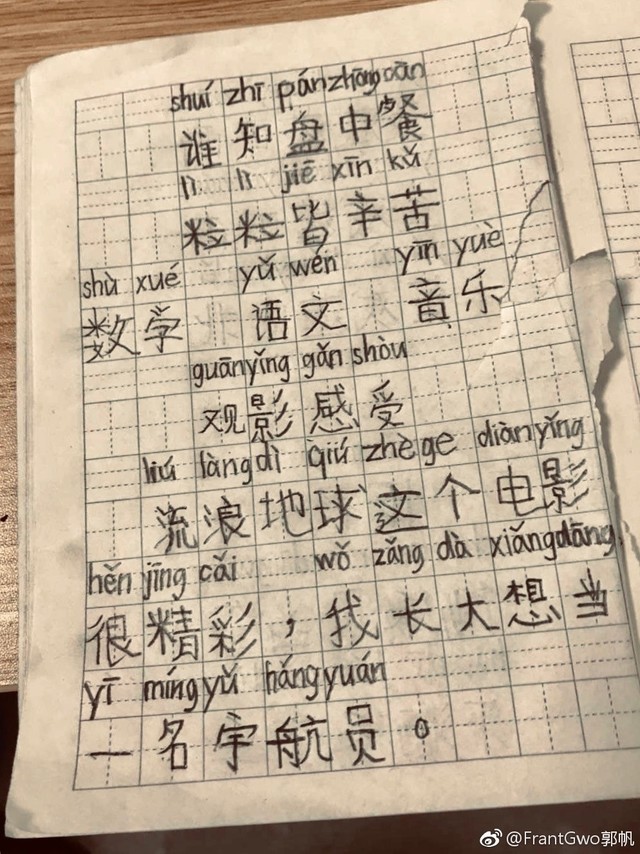 shuí zhī pán zhōng cān
谁知盘中餐
lì lì jiē xīn kǔ
粒粒皆辛苦
shù xué yǔ wén yīn yuè
数学 语文 音乐
guānyǐng gǎn shòu
观影感受
liú làng dì qiú zhè ge diànyǐng
流浪地球这个电影
hěn jīng cǎi wǒ zǎng dà xiǎng dāng
很精彩，我长大想当
yī míng yǔ háng yuán
一名宇航员。
@FrantGwo郭帆